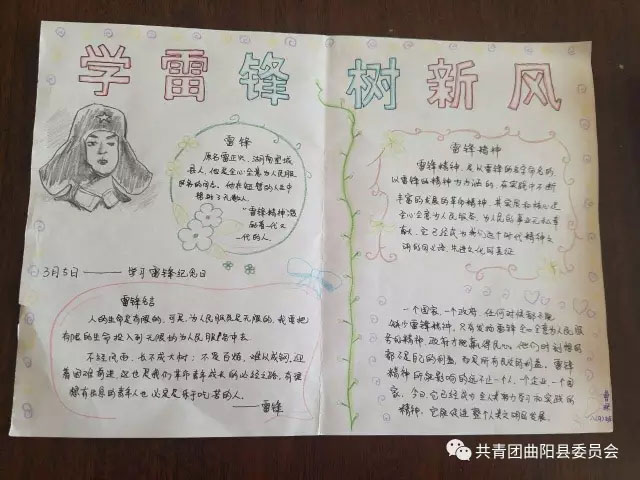 学雷锋 树新风
雷锋
原名雷正兴,湖南望城
县人,他是全心全意为人民服
务的同志,他在短暂的人生中
帮助了无数人。
"雷锋精神激
励着一代又
一代的人。
3月5日——学习雷锋纪念日
雷锋名言
人的生命是有限的,可是,为人民服务是无限的,我要把
有限的生命投入到无限的为人民服务中去。
不经风雨,长不成大树;不受百炼,难以成钢,迎
着困难前进,这也是我们革命青年成长的必经之路,有理
想有出息的青年人也必定是乐于吃苦的人。
——雷锋
雷锋精神
雷锋精神,是以雷锋的名字命名的,
以雷锋的精神为内涵的,在实践中不断
丰富的发展的革命精神,其实质和核心是
全心全意为人民服务,为人民的事业无私奉
献,它已经成为我们这个时代精神文
明的同义语,先进文化的表征
一个国家,一个政府,任何时候都不能
缺少雷锋精神,只有发扬雷锋全心全意为人民服
务的精神,政府才能赢得民心,他们时刻想的
都不是自己的利益,而是所有民众的利益,雷锋
精神所能影响的远不止一个人,一个企业,一个国
家,今日,它已经成为全人类努力学习和实践的
精神,它能促进整个人类文明发展。
共青团曲阳县委员会